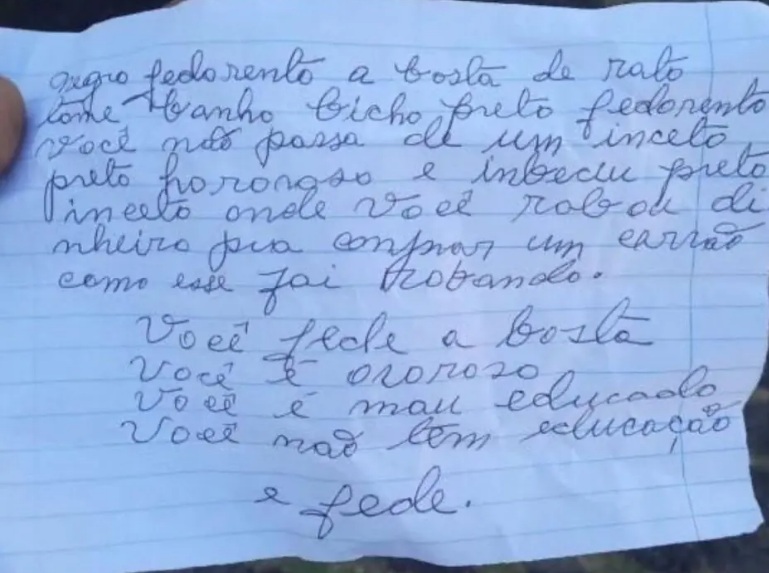 negro fedorento a bosta de rato
tome banho bicho preto fedorento
você não passa de um inceto
preto hororoso e inbeciu preto
inceto onde você robou di
nheiro pra comprar um carrão
como esse foi robando.
Você fede a bosta
Você é ororoso
Você é mau educado
Você não tem educação
e fede.